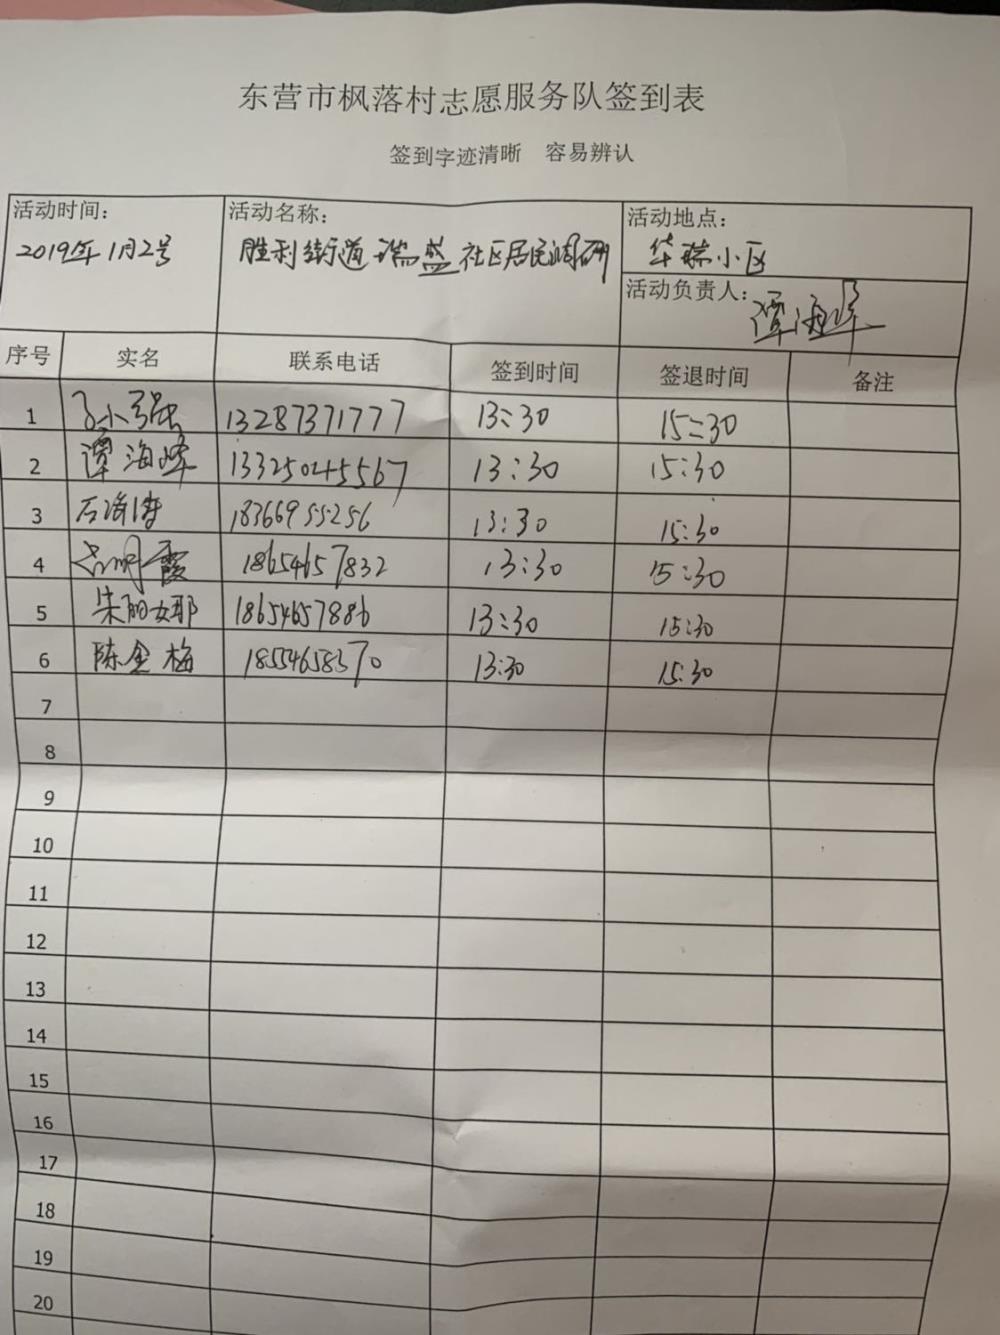 东营市枫落村志愿服务队签到表
签到字迹清晰 容易辨认
活动时间： 活动名称： 活动地点：
2019年1月2号 胜利街道瑞盛社区居民调研 华瑞小区
活动负责人：谭海峰
序号 实名 联系电话 签到时间 签退时间 备注
1 孙小强 13287371777 13:30 15:30
2 谭海峰 13325045567 13:30 15:30
3 石 18366955256 13:30 15:30
4 明霞 18654657832 13:30 15:30
5 朱丽娜 18654657886 13:30 15:30
6 陈金梅 18554658370 13:30 15:30
7
8
9
10
11
12
13
14
15
16
17
18
19
20